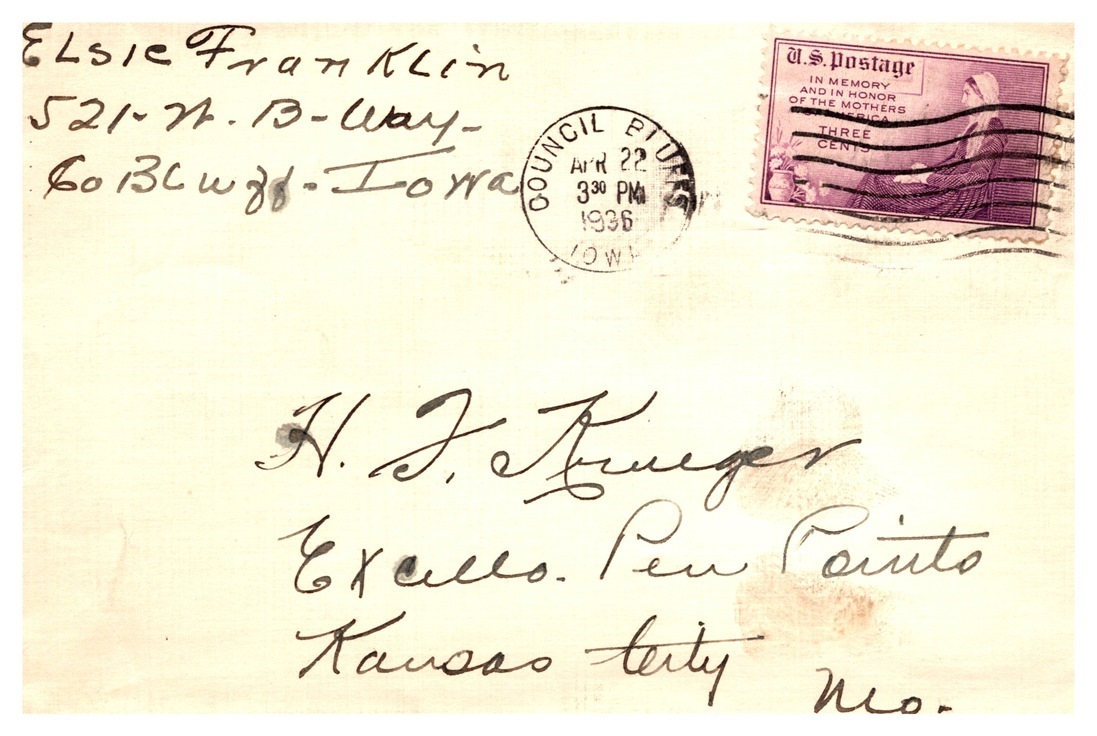 Elsie Franklin
521-N. B-Way-
Co Bluff-Iowa
COUNCIL BLUFFS
APR 22
3 30 PM
1936
IOWA
U.S. Postage
IN MEMORY
AND IN HONOR
OF THE MOTHERS
OF AMERICA
THREE
CENTS
H. F. Krueger
Excello. Pen Points
Kansas City
Mo.